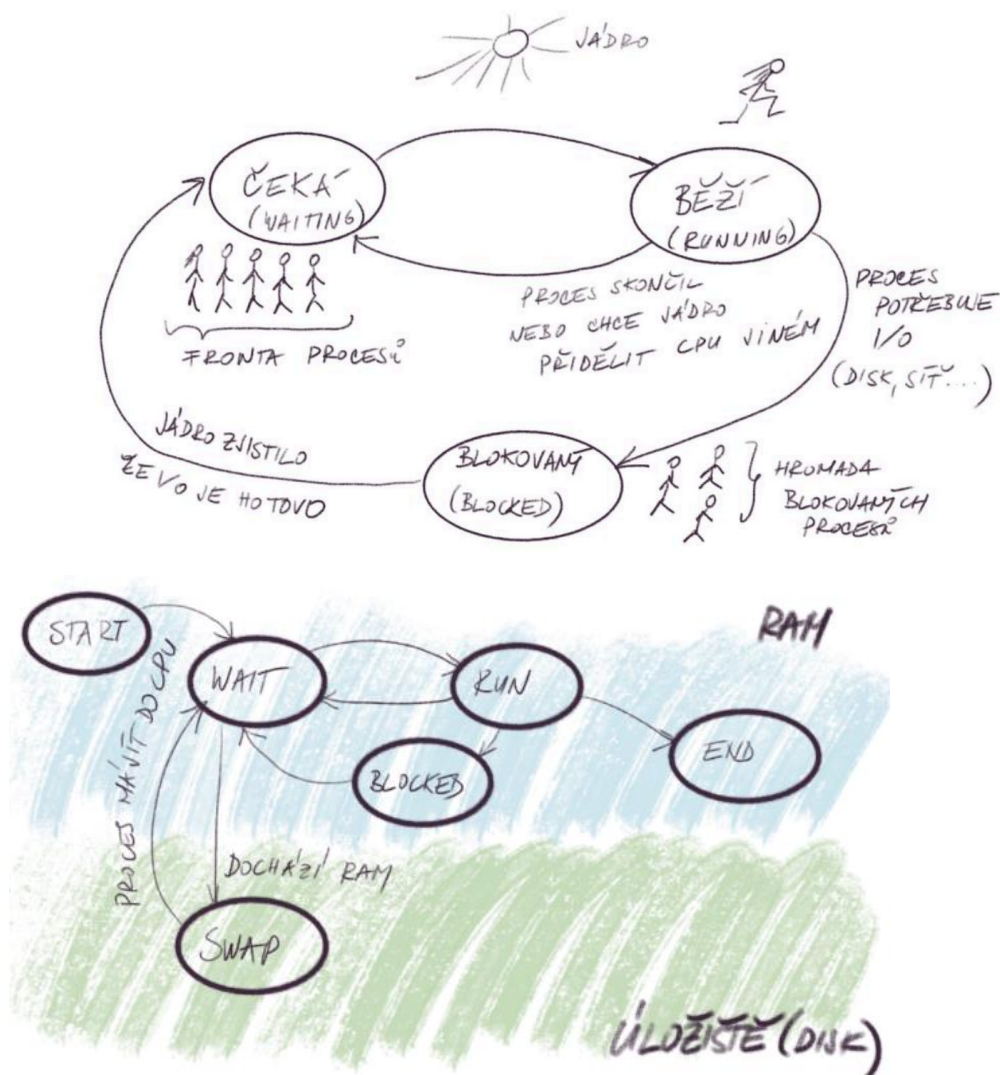 JÁDRO
ČEKÁ
(WAITING)
BĚŽÍ
(RUNNING)
FRONTA PROCESŮ
PROCES SKONČIL
NEBO CHCE JÁDRO
PŘIDĚLIT CPU JINÉM
PROCES
POTŘEBUJE
I/O
(DISK, SÍŤ...)
JÁDRO ZJISTILO
ŽE I/O JE HOTOVO
BLOKOVANÝ
(BLOCKED)
HROMADA
BLOKOVANÝCH
PROCESŮ
RAM
START
WAIT
RUN
END
BLOCKED
PROCES MÁ JÍT DO CPU
DOCHÁZÍ RAM
SWAP
ÚLOŽIŠTĚ (DISK)